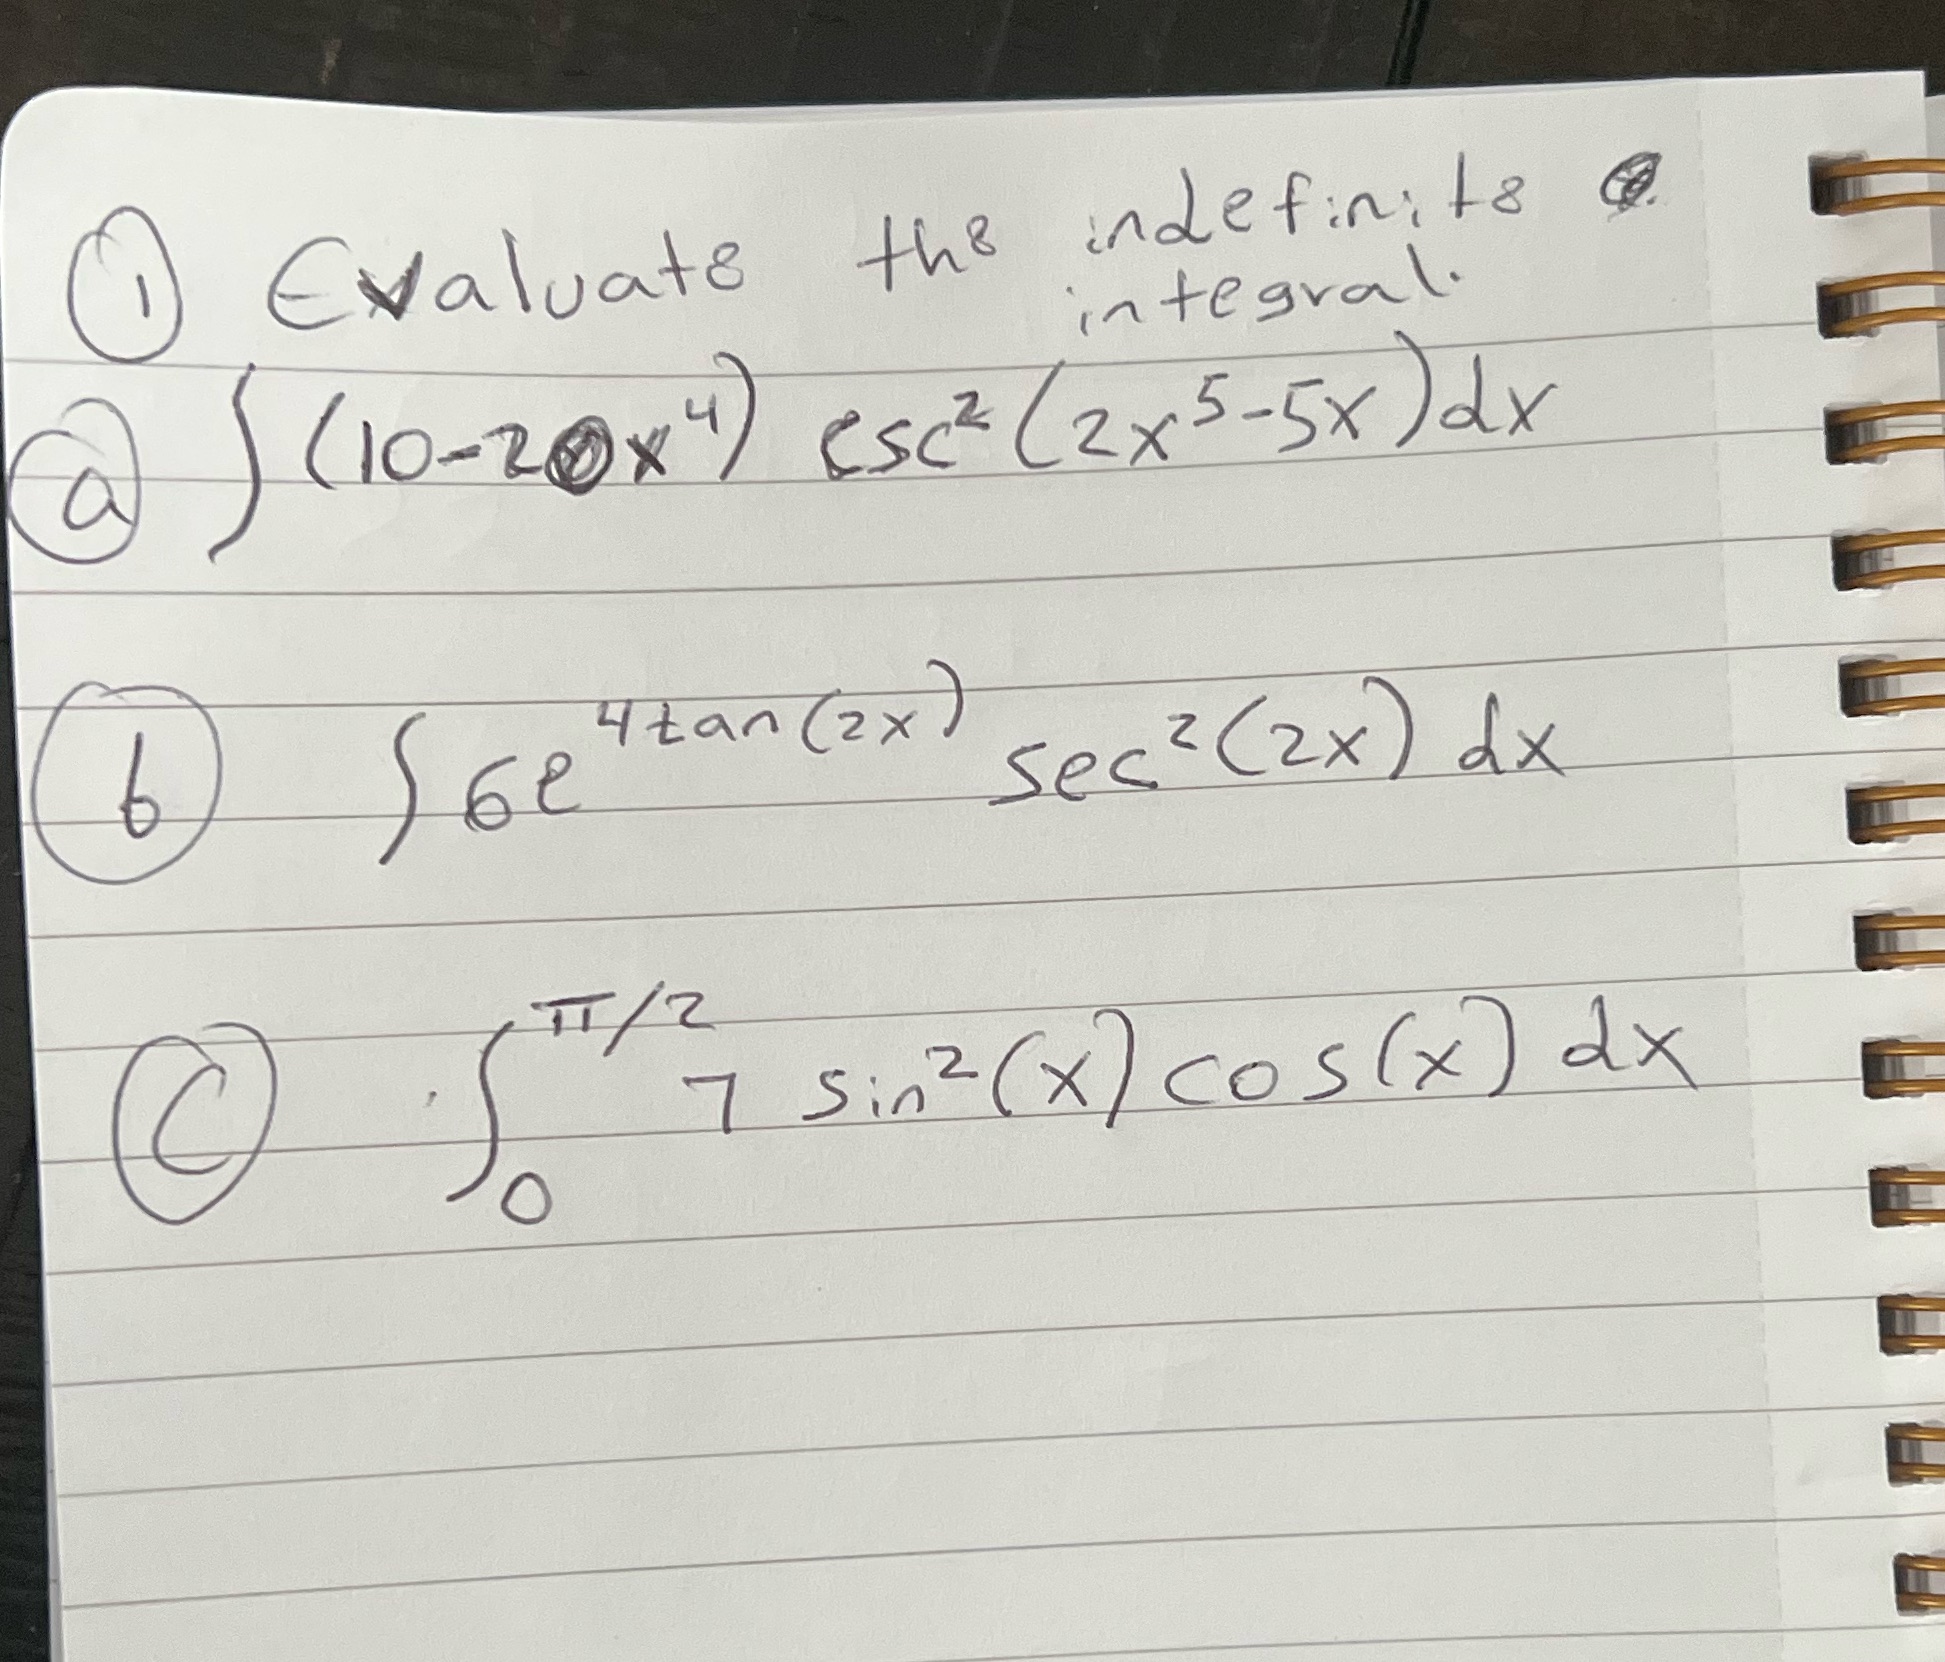 ① Evaluate the indefinite
integral.
ⓐ ∫(10-20x⁴) csc²(2x⁵-5x)dx
ⓑ ∫6e^(4tan(2x)) sec²(2x) dx
ⓒ ∫₀^(π/2) 7 sin²(x) cos(x) dx